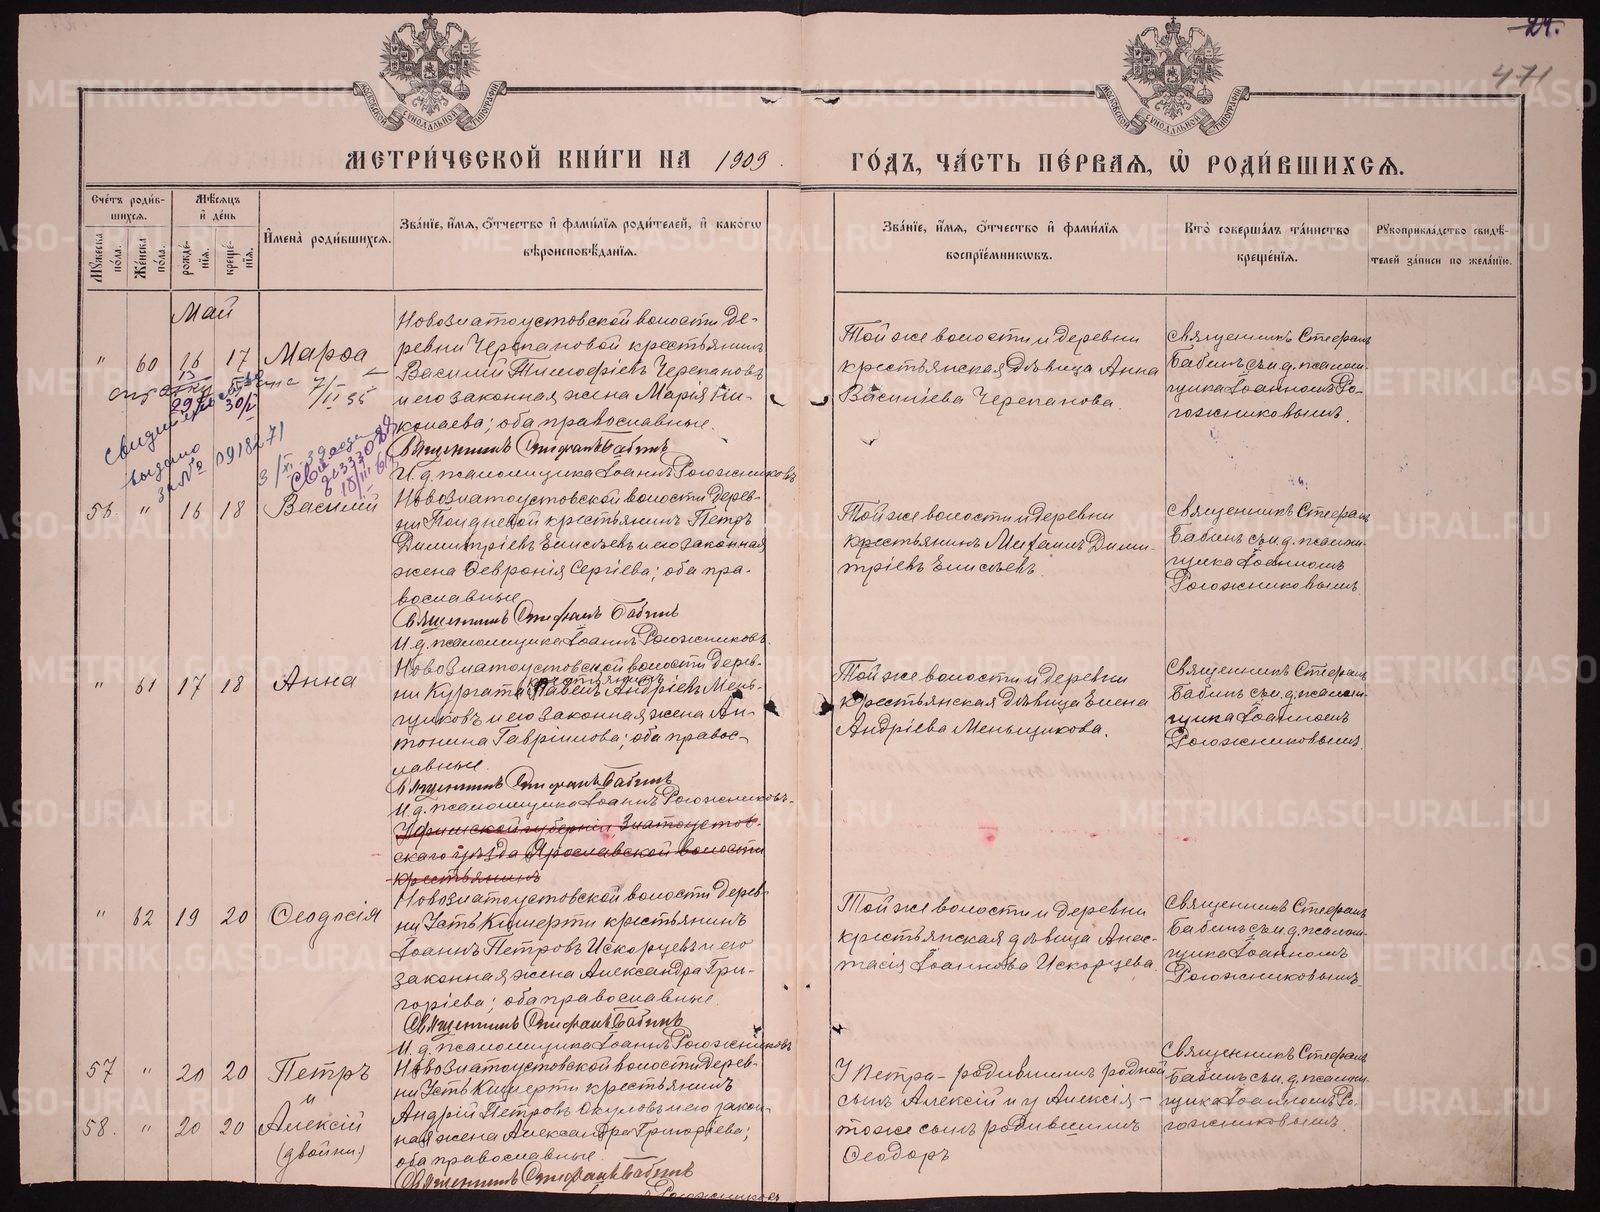 24.
471
МОСКОВСКОЙ СѴНОДАЛЬНОЙ ТИПОГРАФІИ
МОСКОВСКОЙ СѴНОДАЛЬНОЙ ТИПОГРАФІИ
МЕТРИ́ЧЕСКОЙ КНИ́ГИ НА 1909 ГО́ДЪ, ЧА́СТЬ ПЕ́РВАЯ, Ѡ РОДИ́ВШИХСЯ.
Сче́тъ роди́в-
шихся.
Мѣ́сяцъ
и҆ де́нь
Мꙋ́жеска по́ла.
Же́нска по́ла.
рожде́-
нїя.
креще́-
нїя.
И҆мена̀ роди́вшихся.
Зва́нїе, и҆́мя, ѻ҆́тчество и҆ фами́лїя роди́телей, и҆ како́гѡ
вѣроисповѣ́данїя.
Зва́нїе, и҆́мя, ѻ҆́тчество и҆ фами́лїя
воспрїе́мникѡвъ.
Кто̀ соверша́лъ та́инство
креще́нїя.
Рꙋкоприкла́дство свидѣ́-
телей за́писи по жела́нїю.
Май
" 60 16 17 Марѳа
Новозлатоустовской волости де-
ревни Черепановой крестьянинъ
Василій Тимофіевъ Черепановъ
и его законная жена Марія Ни-
колаева; оба православные.
Священникъ Стефанъ Бабинъ
И. д. псаломщика Іоаннъ Рогожниковъ
Той же волости и деревни
крестьянская дѣвица Анна
Василіева Черепанова.
Священникъ Стефанъ
Бабинъ съ и. д. псалом-
щика Іоанномъ Ро-
гожниковымъ.
7/II 55
30/I
выдано
за № 0918271
18/III 61
56. " 16 18 Василій
Новозлатоустовской волости дерев-
ни Полдневой крестьянинъ Петръ
Димитріевъ Елисѣевъ и его законная
жена Ѳевронія Сергіева; оба пра-
вославные
Священникъ Стефанъ Бабинъ
И. д. псаломщика Іоаннъ Рогожниковъ.
Той же волости и деревни
крестьянинъ Михаилъ Дими-
тріевъ Елисѣевъ.
Священникъ Стефанъ
Бабинъ съ и. д. псалом-
щика Іоанномъ
Рогожниковымъ
" 61 17 18 Анна
Новозлатоустовской волости дерев-
крестьянинъ
ни Кургата Павелъ Андріевъ Мень-
щиковъ и его законная жена Ан-
тонина Гавріилова; оба правос-
лавные
Священникъ Стефанъ Бабинъ
И. д. псаломщика Іоаннъ Рогожниковъ.
Той же волости и деревни
крестьянская дѣвица Елена
Андріева Меньщикова.
Священникъ Стефанъ
Бабинъ съ и. д. псалом-
щика Іоанномъ
Рогожниковымъ
Уфимской губерніи, Златоустов-
скаго уѣзда Ярославской волости
крестьянинъ
" 62 19 20 Ѳеодосія
Новозлатоустовской волости дерев-
ни Усть Кишерти крестьянинъ
Іоаннъ Петровъ Искорцевъ и его
законная жена Александра Гри-
горіева; оба православные.
Священникъ Стефанъ Бабинъ
И. д. псаломщика Іоаннъ Рогожниковъ
Той же волости и деревни
крестьянская дѣвица Анас-
тасія Іоаннова Искорцева
Священникъ Стефанъ
Бабинъ съ и. д. псалом-
щика Іоанномъ
Рогожниковымъ
57 " 20 20 Петръ
и
58. " 20 20 Алексій
(двойни)
Новозлатоустовской волости дерев-
ни Усть Кишерти крестьянинъ
Андрій Петровъ Окуловъ и его закон-
ная жена Александра Григоріева;
оба православные.
Священникъ Стефанъ Бабинъ
Рогожниковъ
У Петра - родившимъ родной
сынъ Алексій и у Алексія -
тоже сынъ родившимъ
Ѳеодоръ
Священникъ Стефанъ
Бабинъ съ и. д. псалом-
щика Іоанномъ Ро-
гожниковымъ.
METRIKI.GASO-URAL.RU